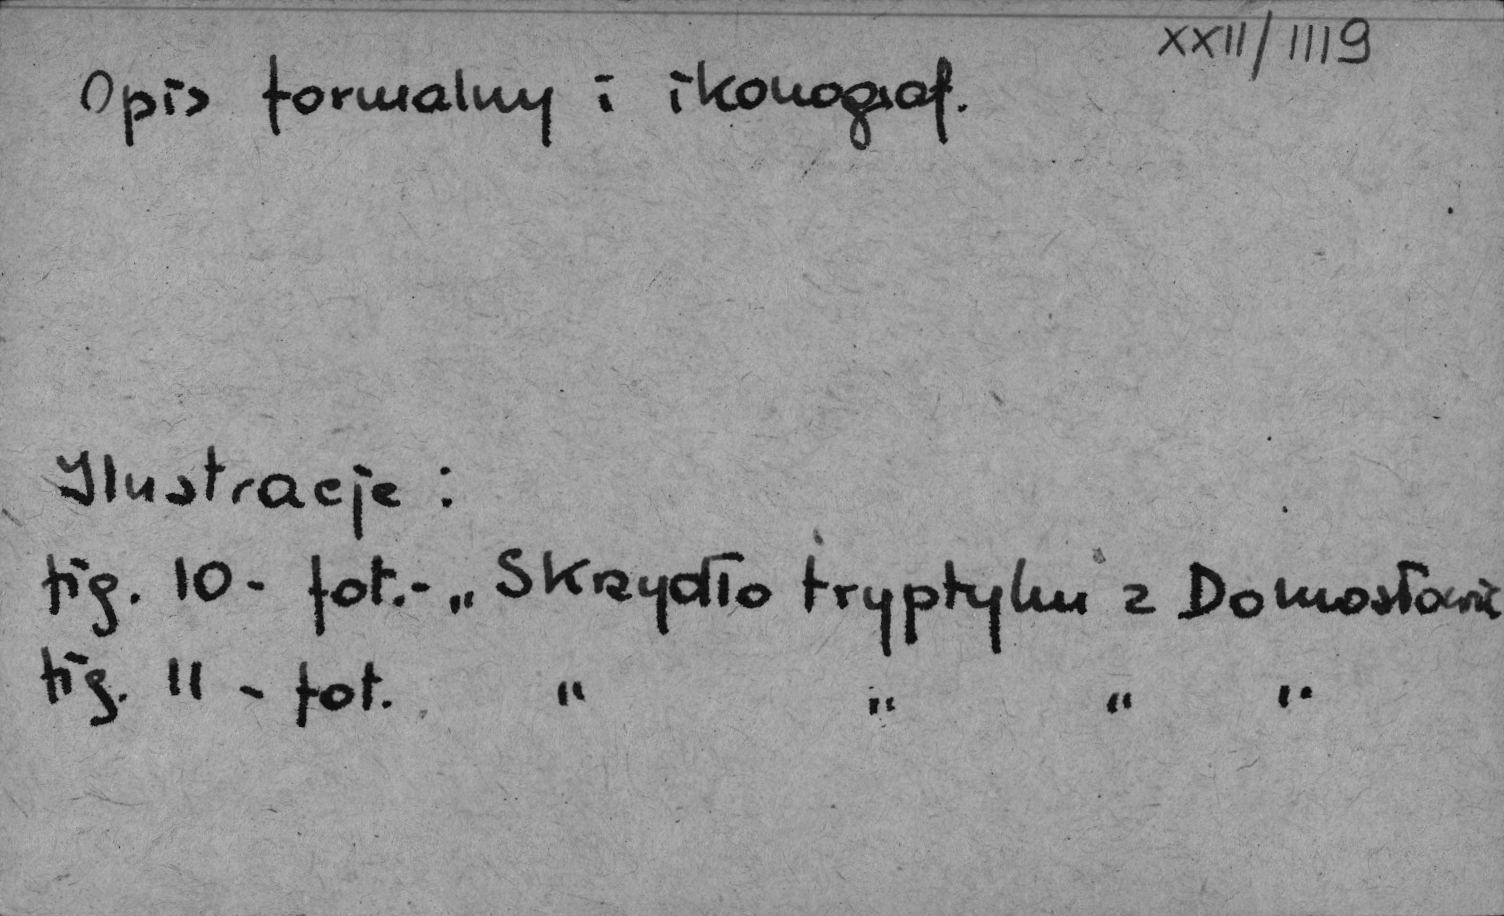 XXII/1119
Opis formalny i ikonograf.
Ilustracje :
fig. 10 - fot. - „Skrzydło tryptyku z Domosławic
fig. 11 - fot. " " " "